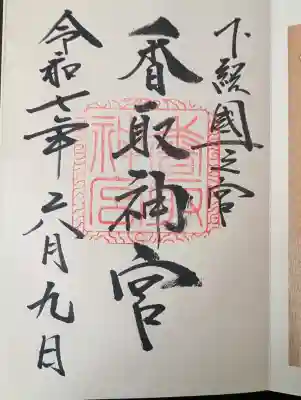 下総國一之宮
香取神宮
令和七年八月九日
香取
神宮